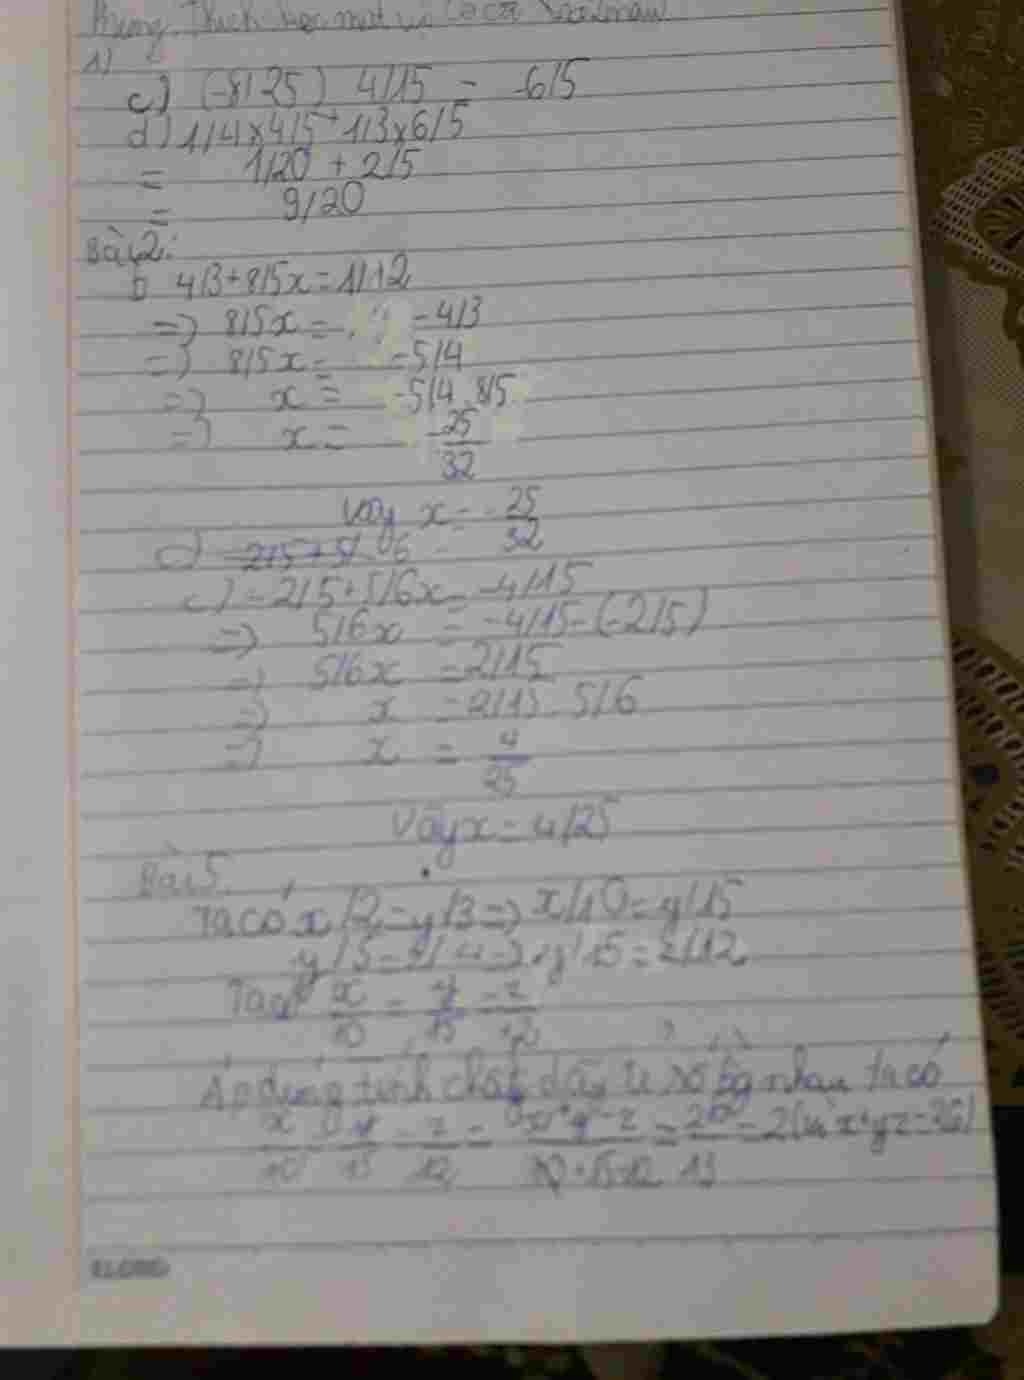 1)
c) (-8/25) 4/15 = -6/5
d) 1/4x4/5+1/3x6/5
= 1/20 + 2/5
= 9/20
Bài 2:
b 4/3+8/5x=1/12
=> 8/5x = -4/3
=> 8/5x = -5/4
=> x = -5/4 8/5
=> x = -25/32
Vậy x = -25/32
c) -2/5+5/ 6
c) -2/5+5/6x=-4/15
=> 5/6x = -4/15-(-2/5)
=> 5/6x = 2/15
=> x = 2/15 5/6
=> x = 4/25
Vậy x = 4/25
Bài 5.
Ta có x/2=y/3=> x/10=y/15
y/5=z/4=> y/15=z/12
Ta có x/10 = y/15 = z/12
Áp dụng tính chất dãy tỉ số bg nhau ta có
x/10 y/15 z/12 =